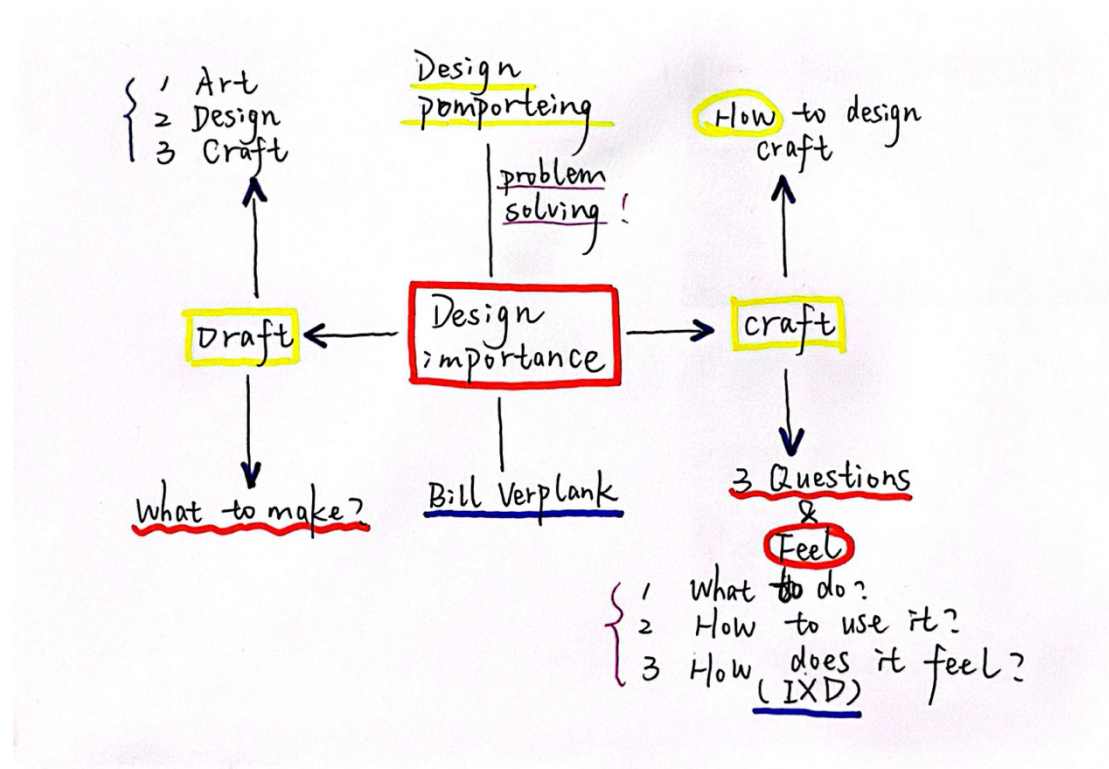 1 Art
2 Design
3 Craft
Design
pomporteing
problem
solving!
How to design
craft
Draft
Design
importance
craft
What to make?
Bill Verplank
3 Questions
&
Feel
1 What to do?
2 How to use it?
3 How does it feel?
(IXD)